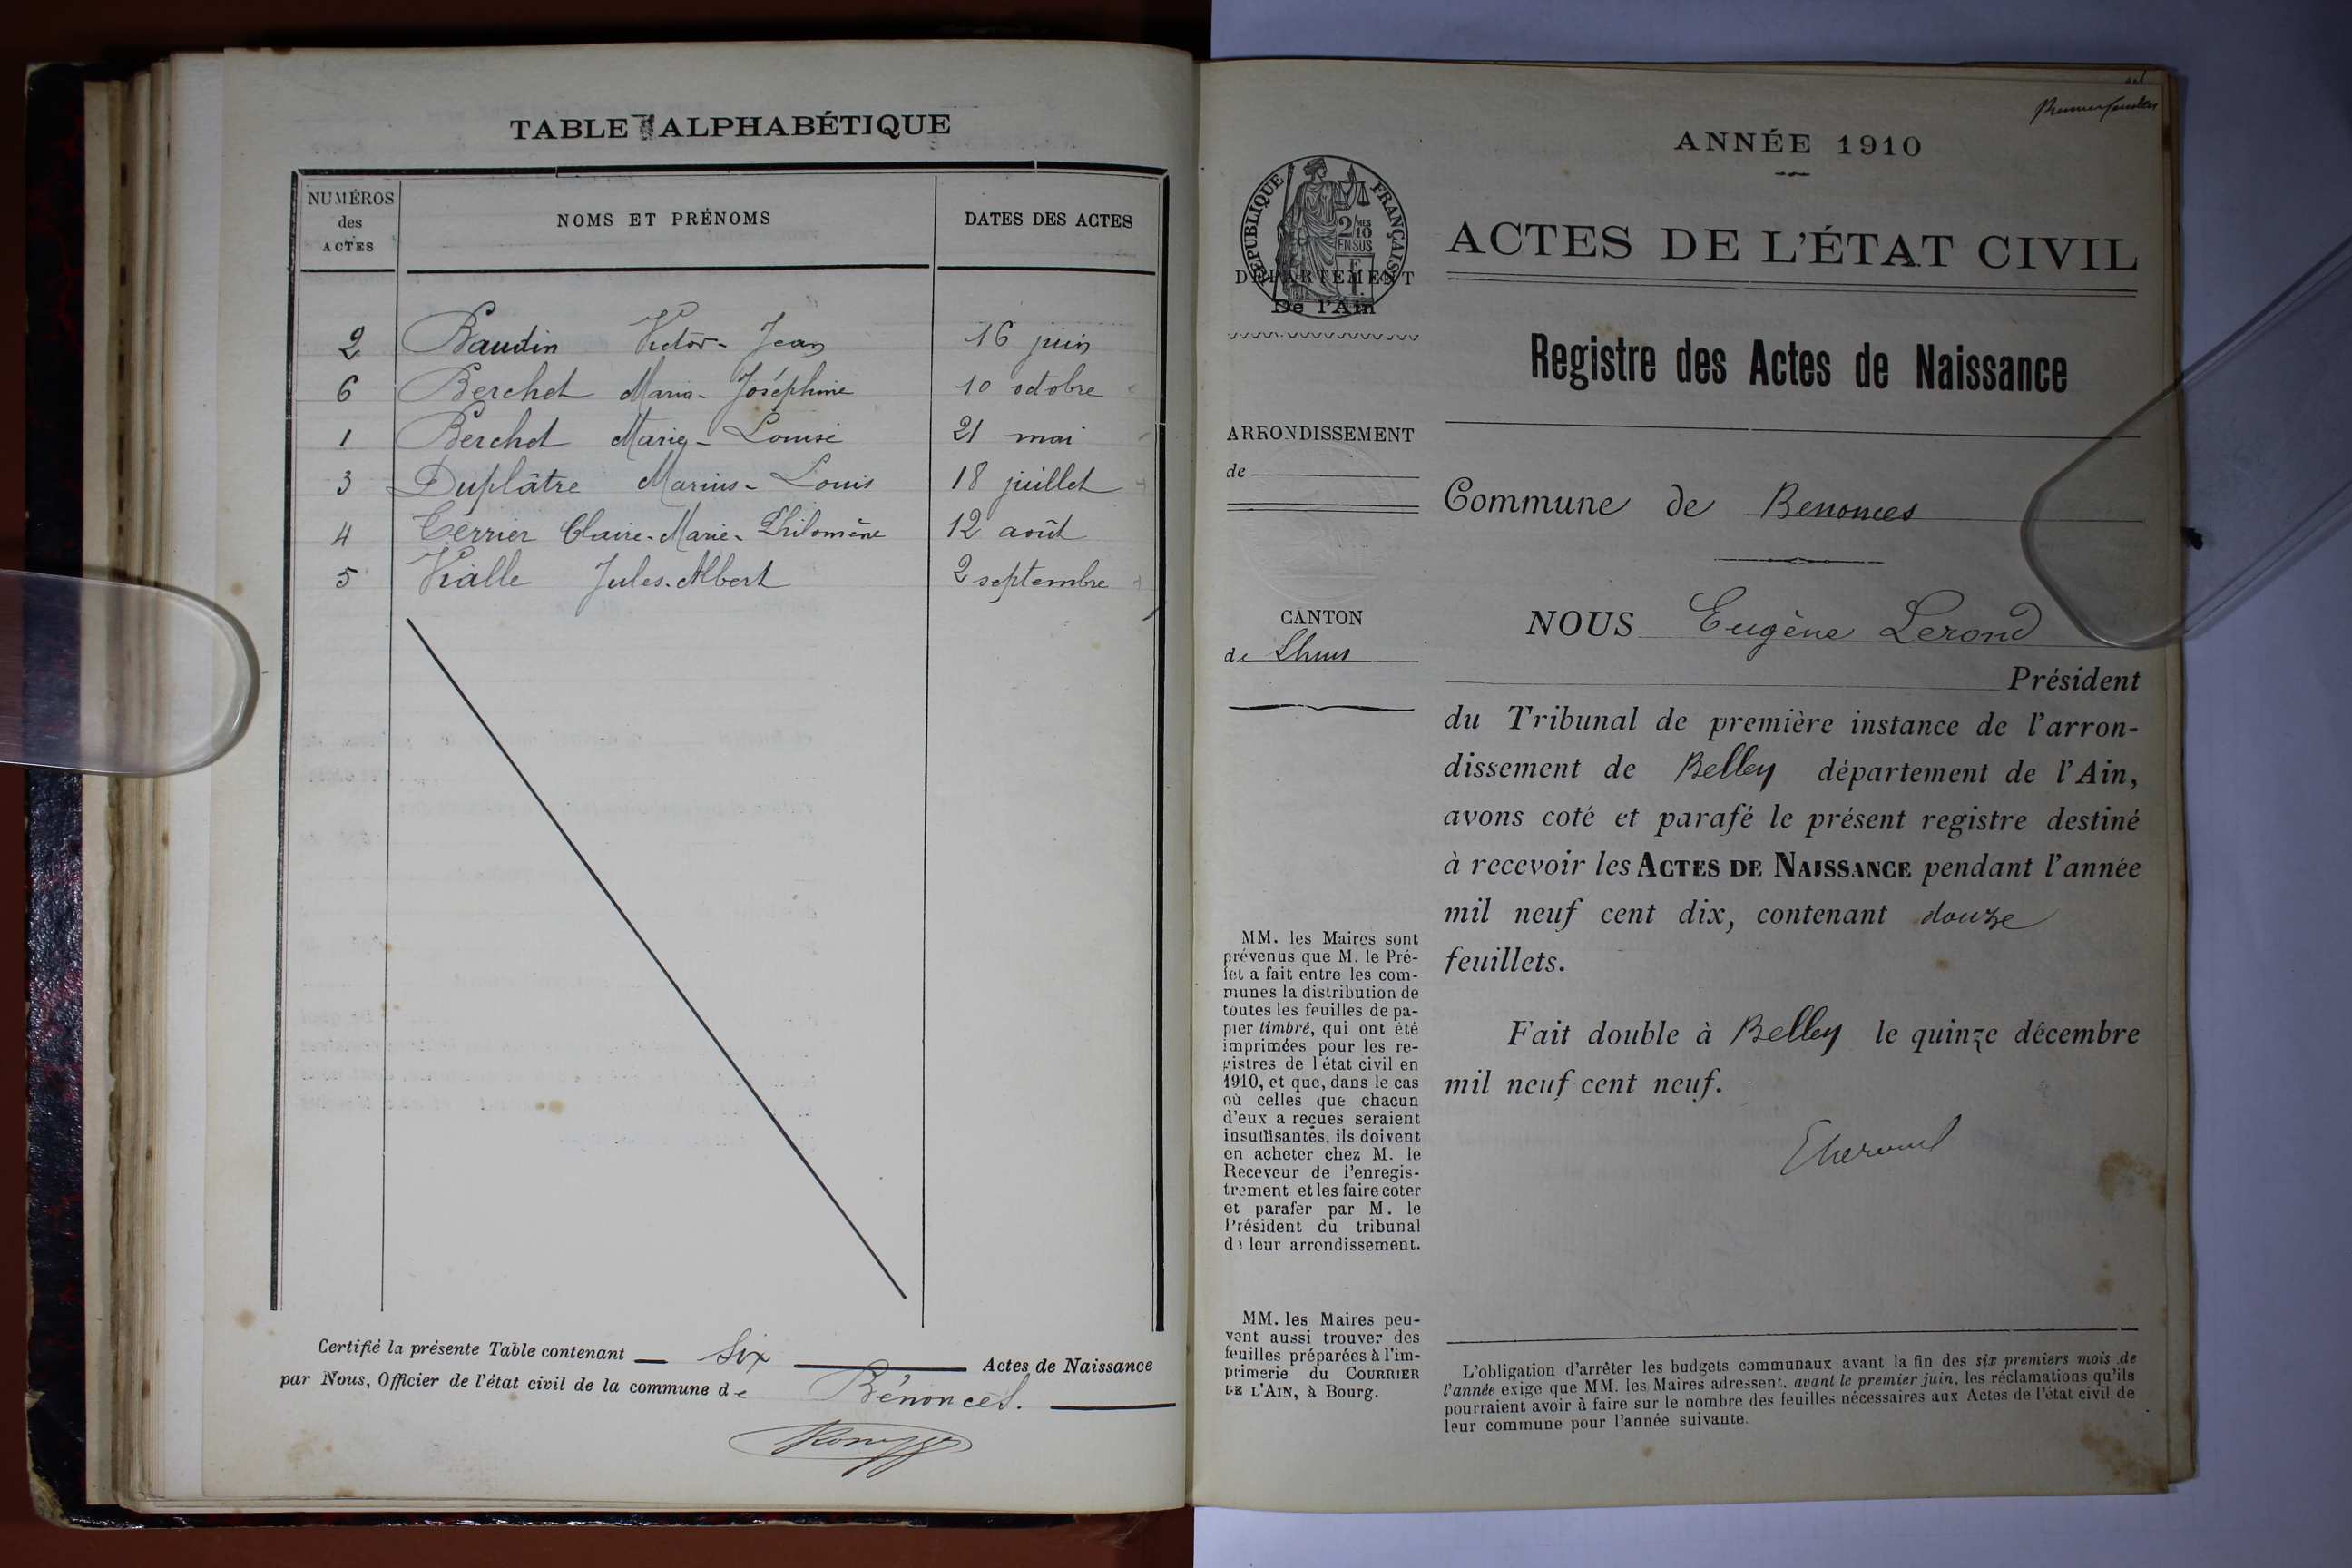 TABLE ALPHABÉTIQUE
NUMÉROS des ACTES
NOMS ET PRÉNOMS
DATES DES ACTES
2 Baudin Victor-Jean 16 juin
6 Berchet Marie-Joséphine 10 octobre
1 Berchet Marie-Louise 21 mai
3 Duplâtre Marius-Louis 18 juillet
4 Terrier Claire-Marie-Philomène 12 août
5 Vialle Jules-Albert 2 septembre
Certifié la présente Table contenant six Actes de Naissance
par Nous, Officier de l'état civil de la commune de Bénonces.
Premier feuillet
ANNÉE 1910
RÉPUBLIQUE FRANÇAISE
2/10
EN SUS
DÉPARTEMENT
De l'Ain
ACTES DE L'ÉTAT CIVIL
Registre des Actes de Naissance
ARRONDISSEMENT
de
Commune de Benonces
CANTON
de Lhuis
NOUS Eugène Lerond
Président
du Tribunal de première instance de l'arron-
dissement de Belley département de l'Ain,
avons coté et parafé le présent registre destiné
à recevoir les ACTES DE NAISSANCE pendant l'année
mil neuf cent dix, contenant douze
feuillets.
Fait double à Belley le quinze décembre
mil neuf cent neuf.
MM. les Maires sont
prévenus que M. le Pré-
fet a fait entre les com-
munes la distribution de
toutes les feuilles de pa-
pier timbré, qui ont été
imprimées pour les re-
gistres de l'état civil en
1910, et que, dans le cas
où celles que chacun
d'eux a reçues seraient
insuffisantes, ils doivent
en acheter chez M. le
Receveur de l'enregis-
trement et les faire coter
et parafer par M. le
Président du tribunal
de leur arrondissement.
MM. les Maires peu-
vent aussi trouver des
feuilles préparées à l'im-
primerie du COURRIER
DE L'AIN, à Bourg.
L'obligation d'arrêter les budgets communaux avant la fin des six premiers mois de
l'année exige que MM. les Maires adressent, avant le premier juin, les réclamations qu'ils
pourraient avoir à faire sur le nombre des feuilles nécessaires aux Actes de l'état civil de
leur commune pour l'année suivante.